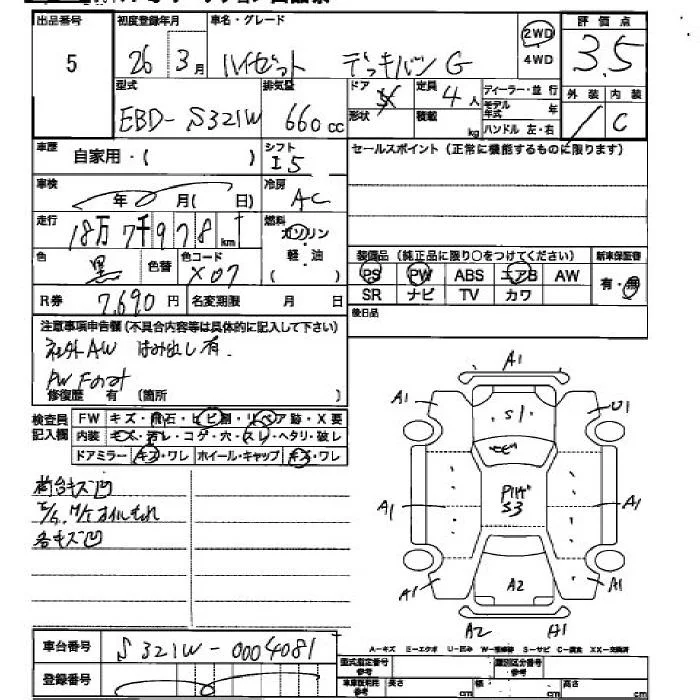 出品番号 初度登録年月 車名・グレード 2WD 4WD 評価点
5 26 3月 ハイゼット デッキバン G 3.5
型式 排気量 ドア 形状 定員 4人 積載 kg ディーラー・並行 モデル年式 年 ハンドル 左・右 外装 内装
EBD-S321W 660cc C
車歴 自家用・( ) シフト I5 セールスポイント(正常に機能するものに限ります)
車検 年 月( 日) 冷房 AC
走行 18万7千978km 燃料 ガソリン・軽油 ( )
色 黒 色替 色コード X07
装備品(純正品に限り○をつけてください) 新車保証書
PS PW ABS エアB AW 有・無
SR ナビ TV カワ
R券 7,690円 名変期限 月 日 後日品
注意事項申告欄(不具合内容等は具体的に記入して下さい)
社外AW はみ出し有.
PW Fのみ
修復歴 有(箇所 )
検査員記入欄 FW キズ・飛石・ヒビ割・リペア跡・X要
内装 キズ・汚レ・コゲ・穴・スレ・ヘタリ・破レ
ドアミラー キズ・ワレ ホイール・キャップ キズ・ワレ
荷台キズ凹
E/G, M/T オイルもれ
各キズ凹
A1
A1 S1 U1
A1 S3 A1
A1 A2 A1
A2 A1
車台番号 S321W-0004081
A-キズ E-エクボ U-凹み W-補修跡 S-サビ C-腐食 XX-交換済
登録番号 型式指定番号 参考 類別区分番号 参考
車体寸法 参考 長さ cm 幅 cm 高さ cm